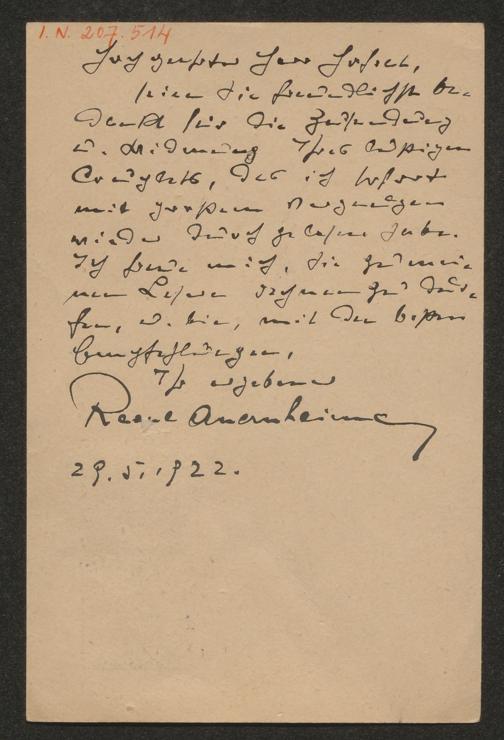 I. N. 207.514
Hochgeehrter Herr
seien Sie freundlichst be-
dankt für die Zusendung
u. Widmung Ihres
das ich sofort
mit großem Vergnügen
wieder durchgelesen habe.
Ich freue mich, Sie zu mei-
nen Lesern rechnen zu dür-
fen, u. bin, mit den besten
Empfehlungen,
Ihr ergebener
Raoul Auernheimer
29.5.1922.